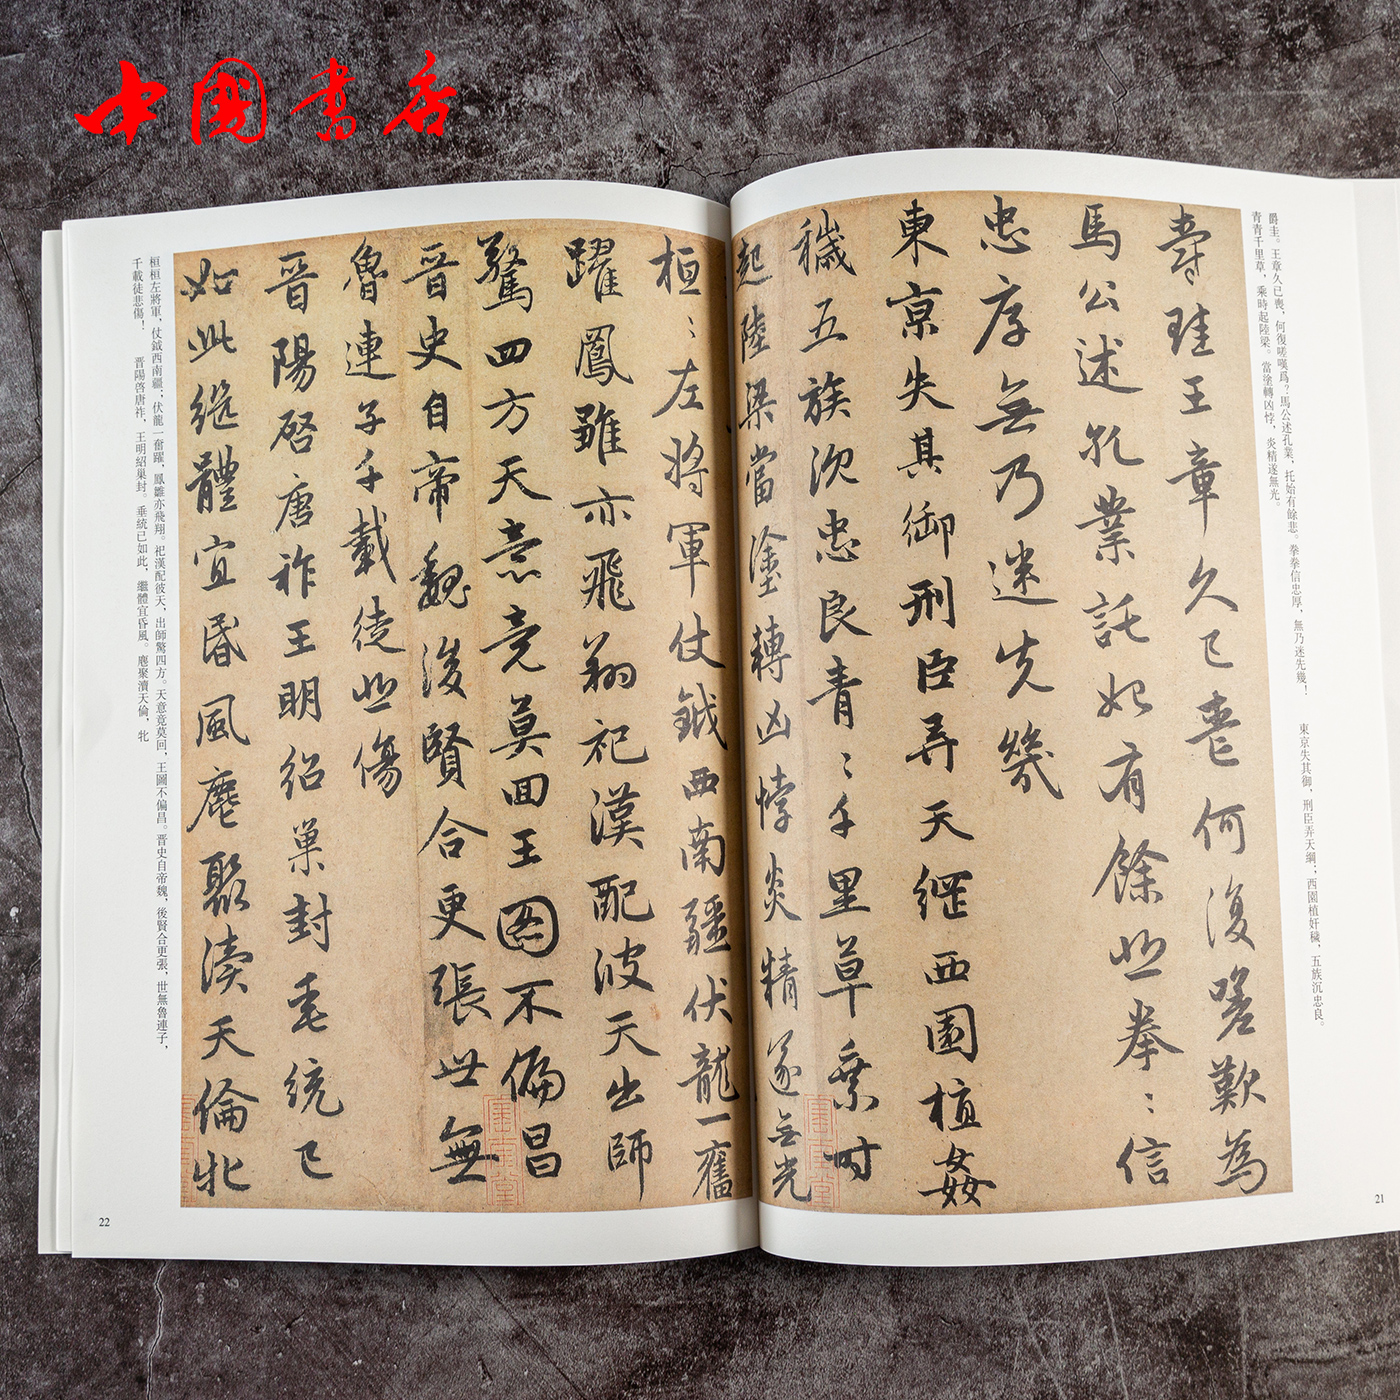 中國書店
爵圭。王章久已喪，何復嗟嘆爲？馬公述孔業，托始有餘悲。拳拳信忠厚，無乃迷先幾！　東京失其御，刑臣弄天綱；西園植奸穢，五族沉忠良。
青青千里草，乘時起陸梁。當塗轉凶悖，炎精遂無光。
壽珪王章久已喪何復嗟歎為
馬公述孔業託始有餘悲拳〻信
忠厚無乃迷先幾
東京失其御刑臣弄天綱西園植姦
穢五族沉忠良青〻千里草乗時
起陸梁當塗轉凶悖炎精遂無光
桓〻左將軍仗鉞西南疆伏龍一奮
躍鳳雛亦飛翔祀漢配彼天出師
驚四方天意竟莫回王圖不偏昌
晉史自帝魏後賢合更張世無
魯連子千載徒悲傷
晉陽啓唐祚王明紹巢封垂統已
如此継體宜昏風麀聚瀆天倫牝
桓桓左將軍，仗鉞西南疆；伏龍一奮躍，鳳雛亦飛翔。祀漢配彼天，出師驚四方。天意竟莫回，王圖不偏昌。晋史自帝魏，後賢合更張，世無魯連子，
千載徒悲傷！　晋陽啓唐祚，王明紹巢封。垂統已如此，繼體宜昏風。麀聚瀆天倫，牝
22
21